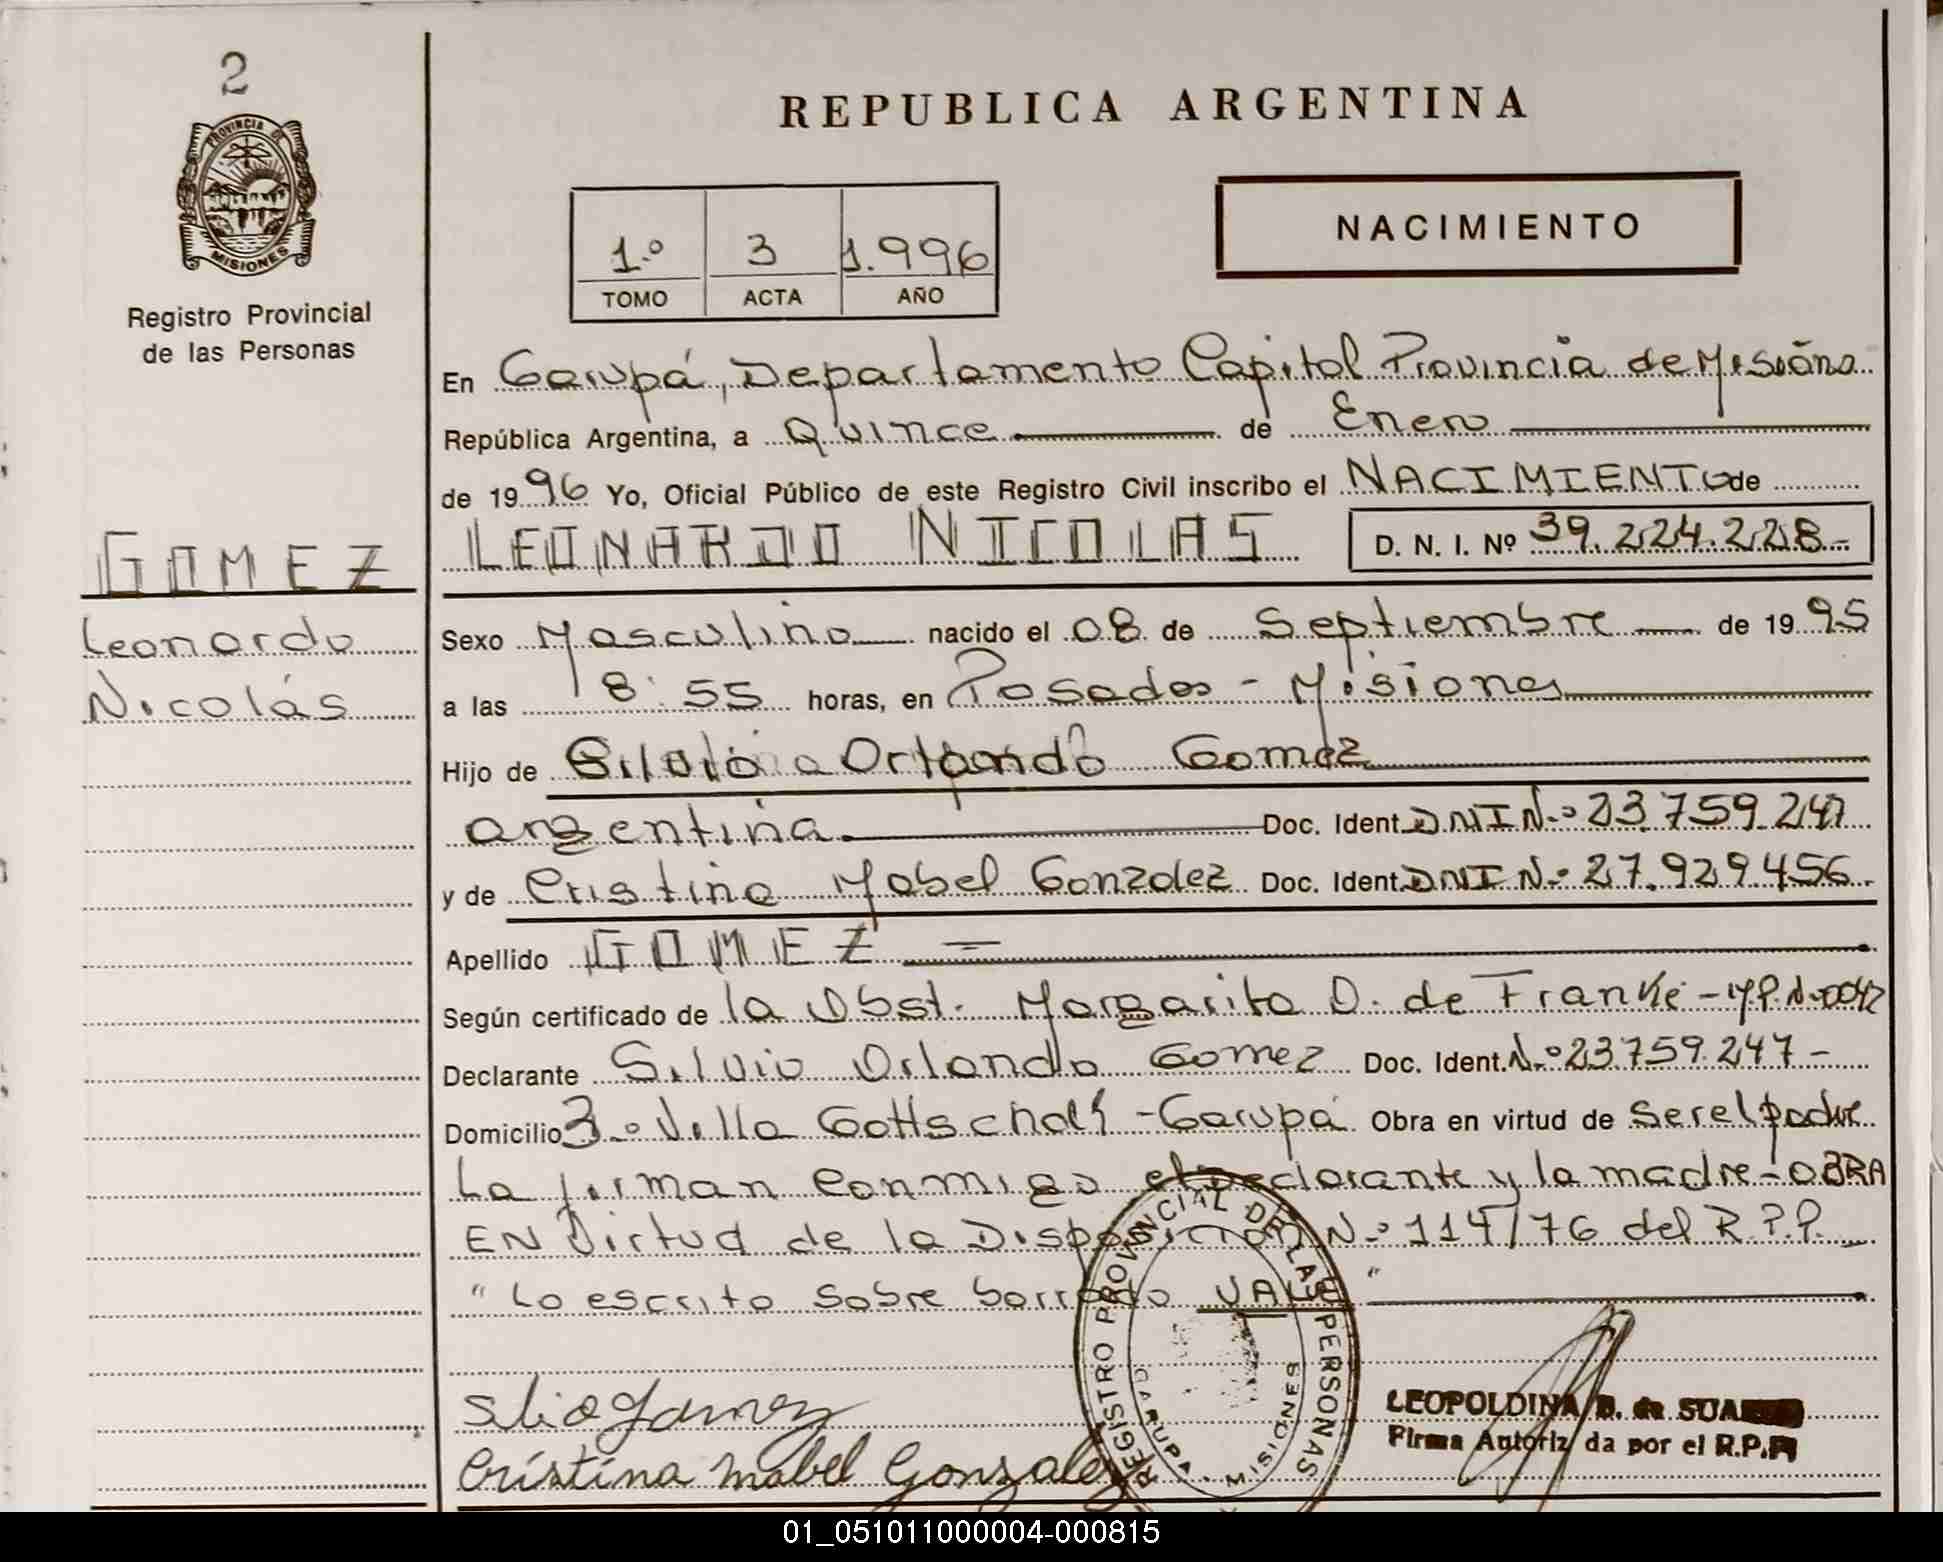 2
PROVINCIA DE
MISIONES
Registro Provincial
de las Personas
REPUBLICA ARGENTINA
1.º 3 1.996
TOMO ACTA AÑO
NACIMIENTO
En Garupá, Departamento Capital Provincia de
República Argentina, a Quince de Enero
de 19 96 Yo, Oficial Público de este Registro Civil inscribo el NACIMIENTO de
LEONARDO NICOLAS D. N. I. Nº 39.224.228.-
GOMEZ
Leonardo
Nicolás
Sexo Masculino nacido el 08 de Septiembre de 19 95
a las 8:55 horas, en Posadas - Misiones
Hijo de Orlando Gomez
argentina. Doc. Ident. DNI N.º 23.759.247
y de Cristina Mabel Gonzalez Doc. Ident. DNI N.º 27.929.456.-
Apellido GOMEZ =
Según certificado de la Obst. Margarita D. de Franke - M.P.N.º 0042
Declarante Silvio Orlando Gomez Doc. Ident. N.º 23.759.247-
Domicilio 3.º Villa - Garupá Obra en virtud de ser el padre
La firman conmigo el Declarante y la madre - OBRA
EN Virtud de la Disposición N.º 114/76 del R.P.P.
"Lo escrito sobre borrado VALE"
Silvio Gomez
Cristina Mabel Gonzalez
REGISTRO PROVINCIAL DE LAS PERSONAS
GARUPA - MISIONES
LEOPOLDINA B. de
Firma Autorizada por el R.P.P.
01_051011000004-000815